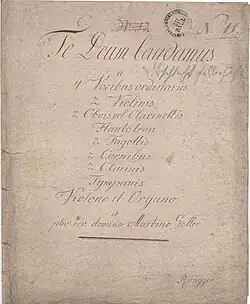 Te Deum Laudamus
a
4 Vocibus ordinariis
2 Violinis
2 Obois vel Clarinettis
Flauto trav.
2 Fagottis
2 Cornibus
2 Clarinis
Tympanis
Violone et Organo
a
plur. rev. domino Martino Gotter